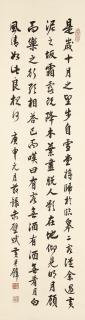 是歲十月之望步自雪堂將歸於臨皋二客從余過黃
泥之坂霜露既降木葉盡脫人影在地仰見明月顧
而樂之行歌相答已而嘆曰有客無酒有酒無肴月白
風清如此良夜何 庚申元月節錄赤壁賦